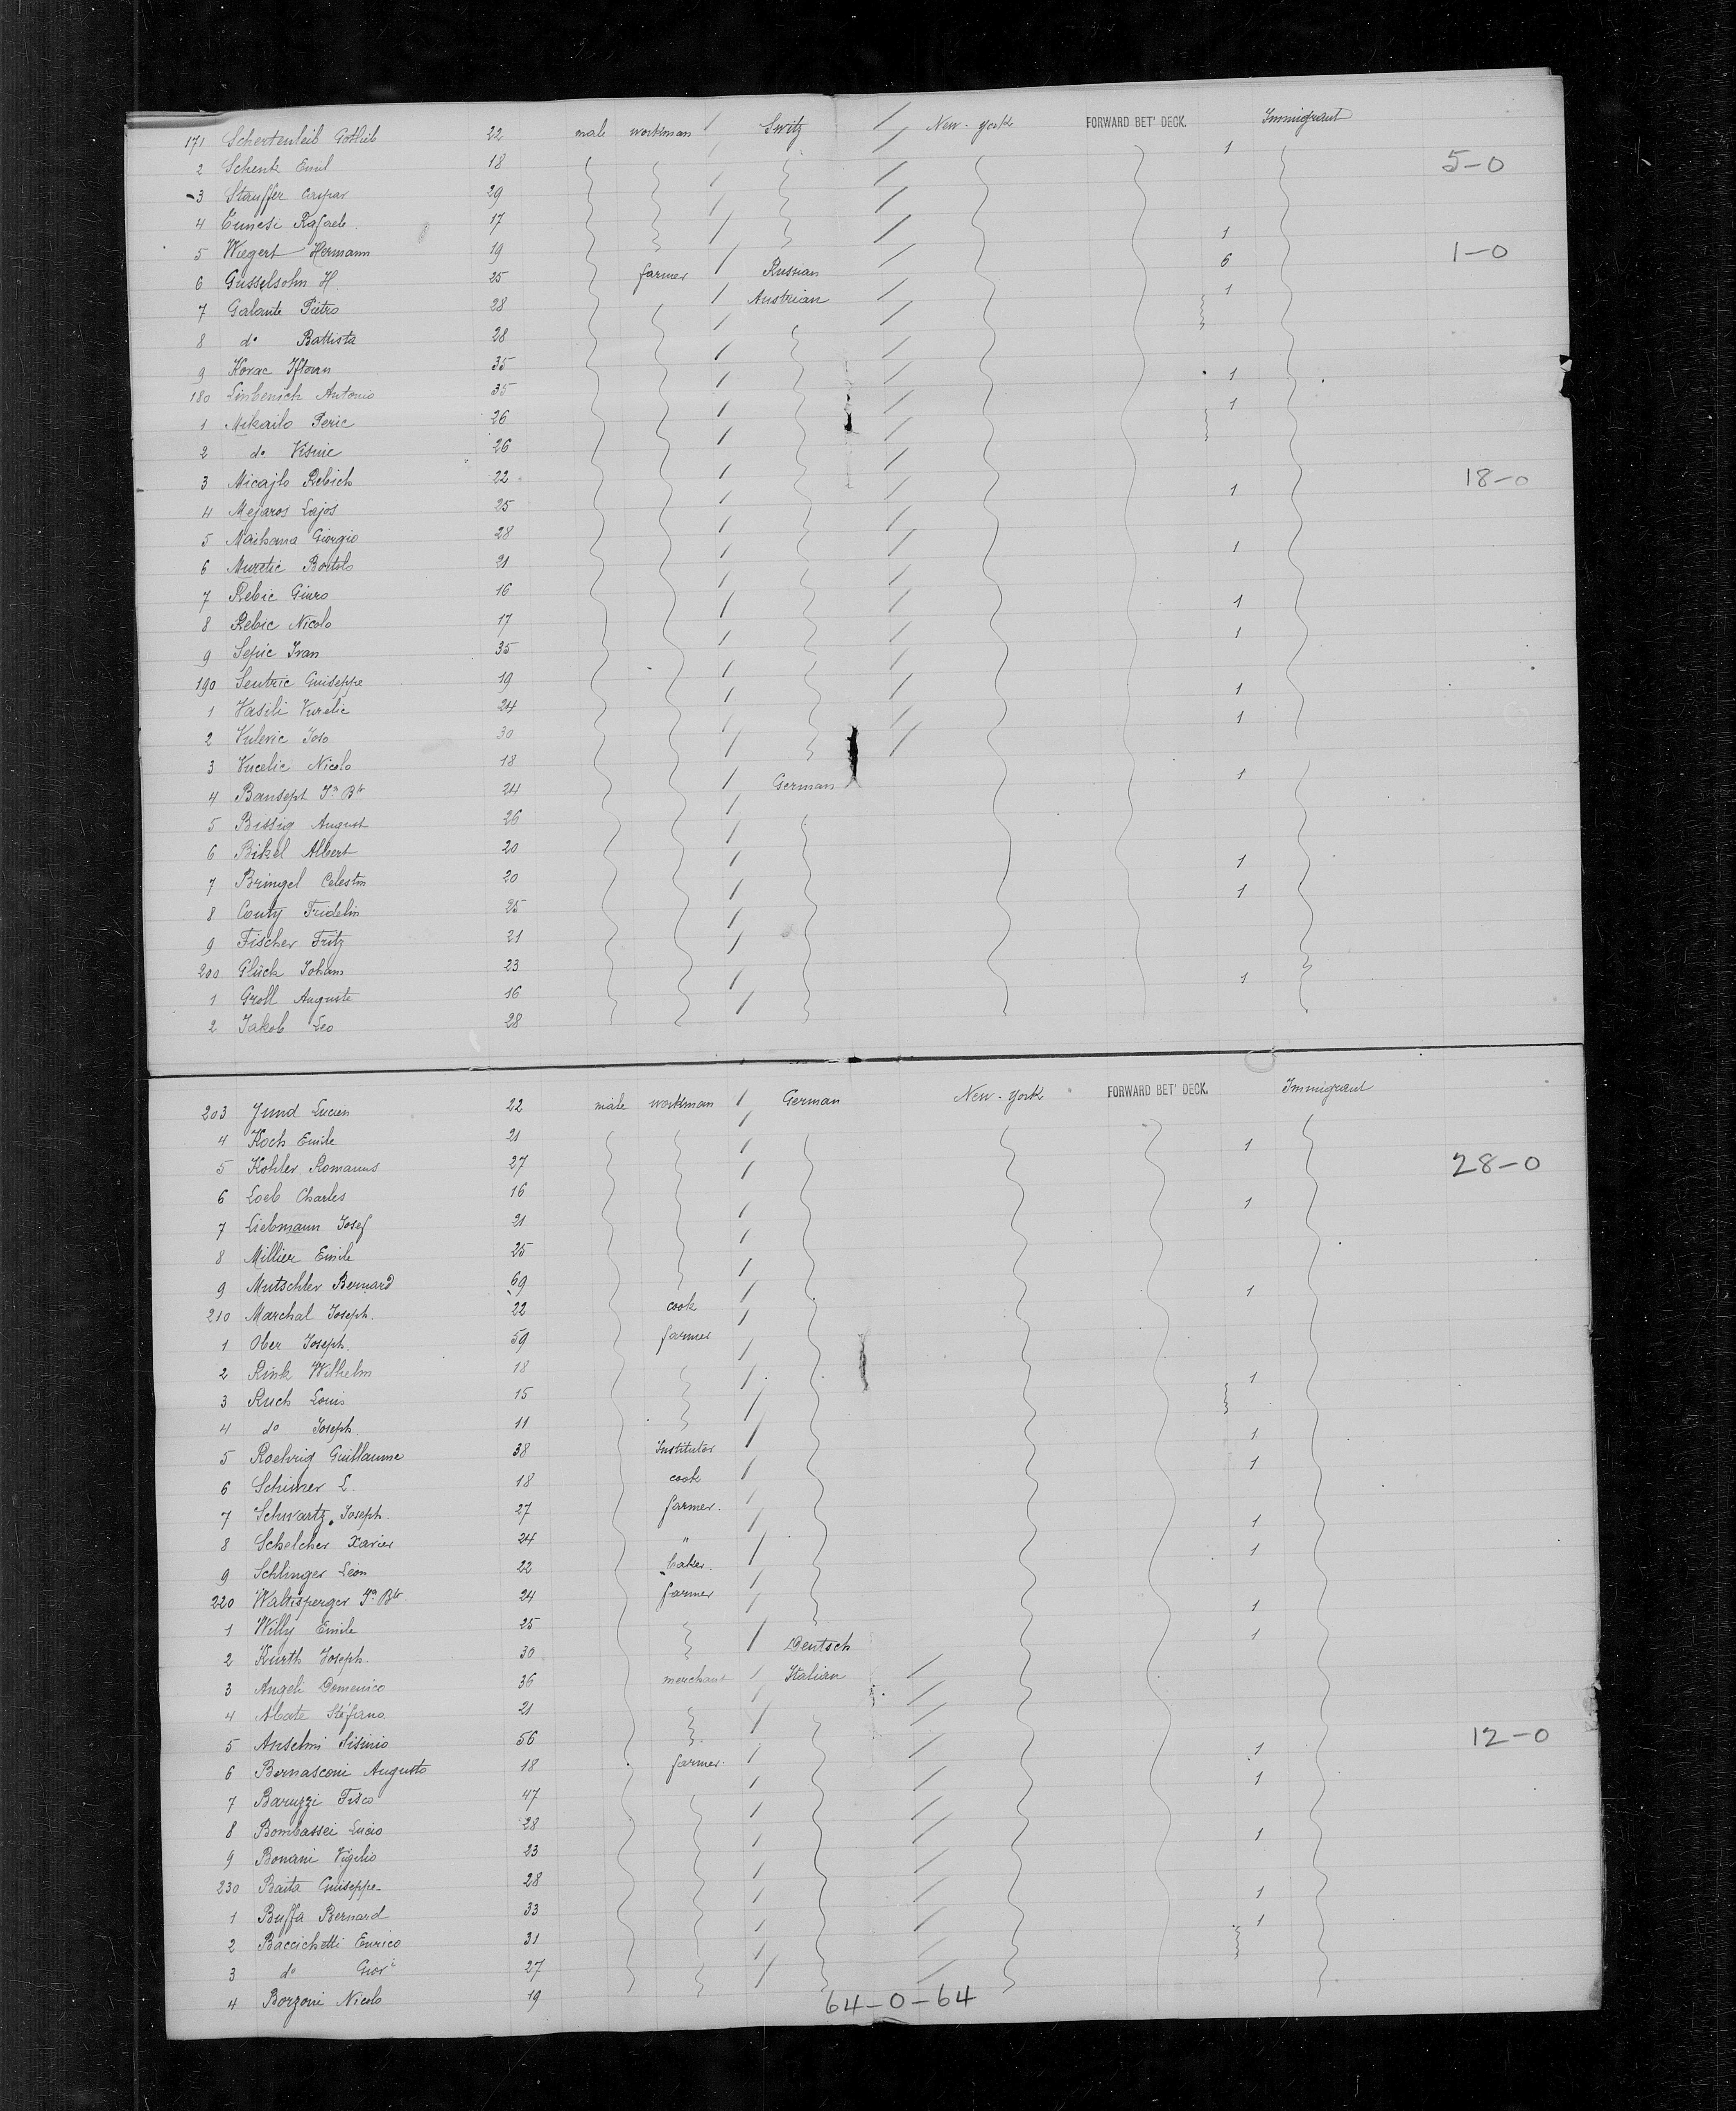 171 Schertenleib Gottlieb 22 male workman / Switz / New-York FORWARD BET' DECK. 1 Immigrant
2 Schenk Emil 18 5-0
3 Stauffer Caspar 29
4 Tunesi Rafaele 17 1
5 Wiegert Hermann 19 6 1-0
6 Gusselsohn H. 25 farmer / Russian / 1
7 Galante Pietro 28 / Austrian /
8 do Battista 28
9 Korac 35 1
180 Antonio 35 1
1 Mikailo Peric 26
2 do Visnic 26
3 Micajlo Rebich 22 1 18-0
4 Mejaros Lajos 25
5 Giorgio 28 1
6 Muretic Bortolo 21
7 Rebic Giuro 16 1
8 Rebic Nicolo 17 1
9 Sepic Ivan 35
190 Sentric Guiseppe 19 1
1 Vasili Vurelic 24 1
2 Vulevic Joso 30
3 Vucelic Nicolo 18 1
4 Bansept Jn Bte 24 / German
5 Bissig August 26
6 Bikel Albert 20 1
7 Bringel Celestin 20 1
8 Couty Fridelin 25
9 Fischer Fritz 21
200 Glück Johann 23 1
1 Groll Auguste 16
2 Jakob Leo 28
203 Jund Lucien 22 male workman / German New-York FORWARD BET' DECK. Immigrant
4 Koch Emile 21 1
5 Kohler Romanus 27 28-0
6 Loeb Charles 16 1
7 Liebmann Josef 21
8 Millier Emile 25
9 Mutschler Bernard 69 1
210 Marchal Joseph. 22 cook
1 Ober Joseph. 59 farmer
2 Rink Wilhelm 18 1
3 Ruch Louis 15
4 do Joseph 11 1
5 Roehrig Guillaume 38 Institutor 1
6 Schirrer L. 18 cook
7 Schwartz Joseph. 27 farmer. 1
8 Schelcher Xavier 24 " 1
9 Schlinger Leon 22 baker.
220 Waltisperger Jn Bte 24 farmer 1
1 Willy Emile 25 1
2 Kurth Joseph. 30 / Deutsch
3 Angeli Domenico 36 merchant / Italian /
4 Abate Stéfano 21
5 Anselmi Sisinio 56 1 12-0
6 Bernasconi Augusto 18 farmer. 1
7 Baruzzi Fisco 47
8 Bombassei Lucio 28 1
9 Bonani Vigilio 23
230 Baita Guiseppe 28 1
1 Buffa Bernard 33 1
2 Baccichetti Enrico 31
3 do Giori 27
4 Borzoni Nicolo 19
64-0-64